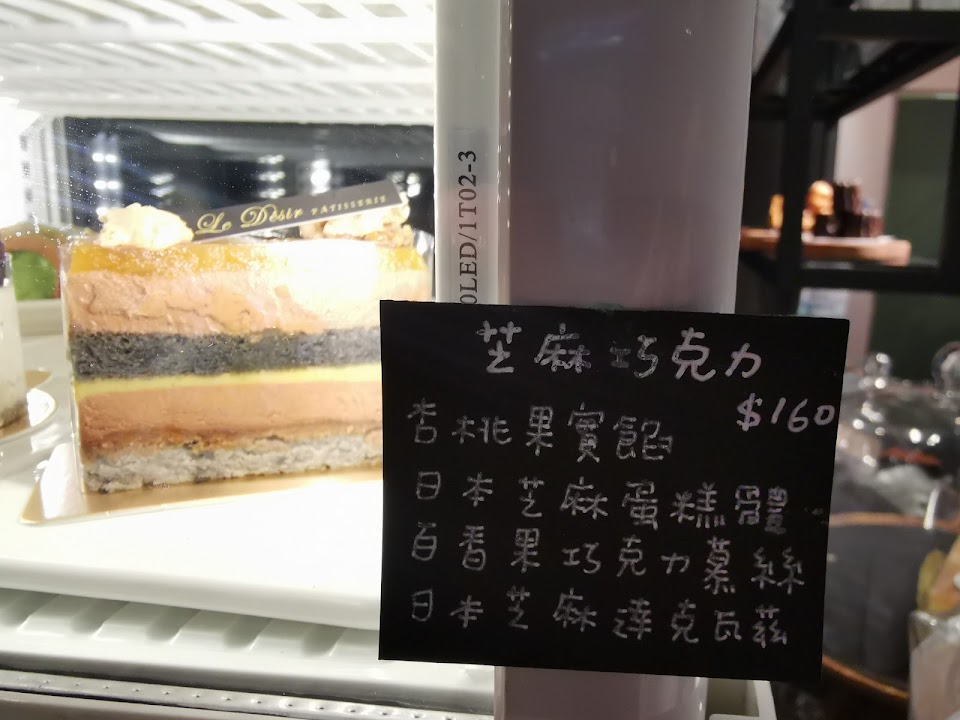 Le Désir PATISSERIE
0LED/1T02-3
芝麻巧克力
$160
杏桃果實餡
日本芝麻蛋糕體
百香果巧克力慕絲
日本芝麻達克瓦茲